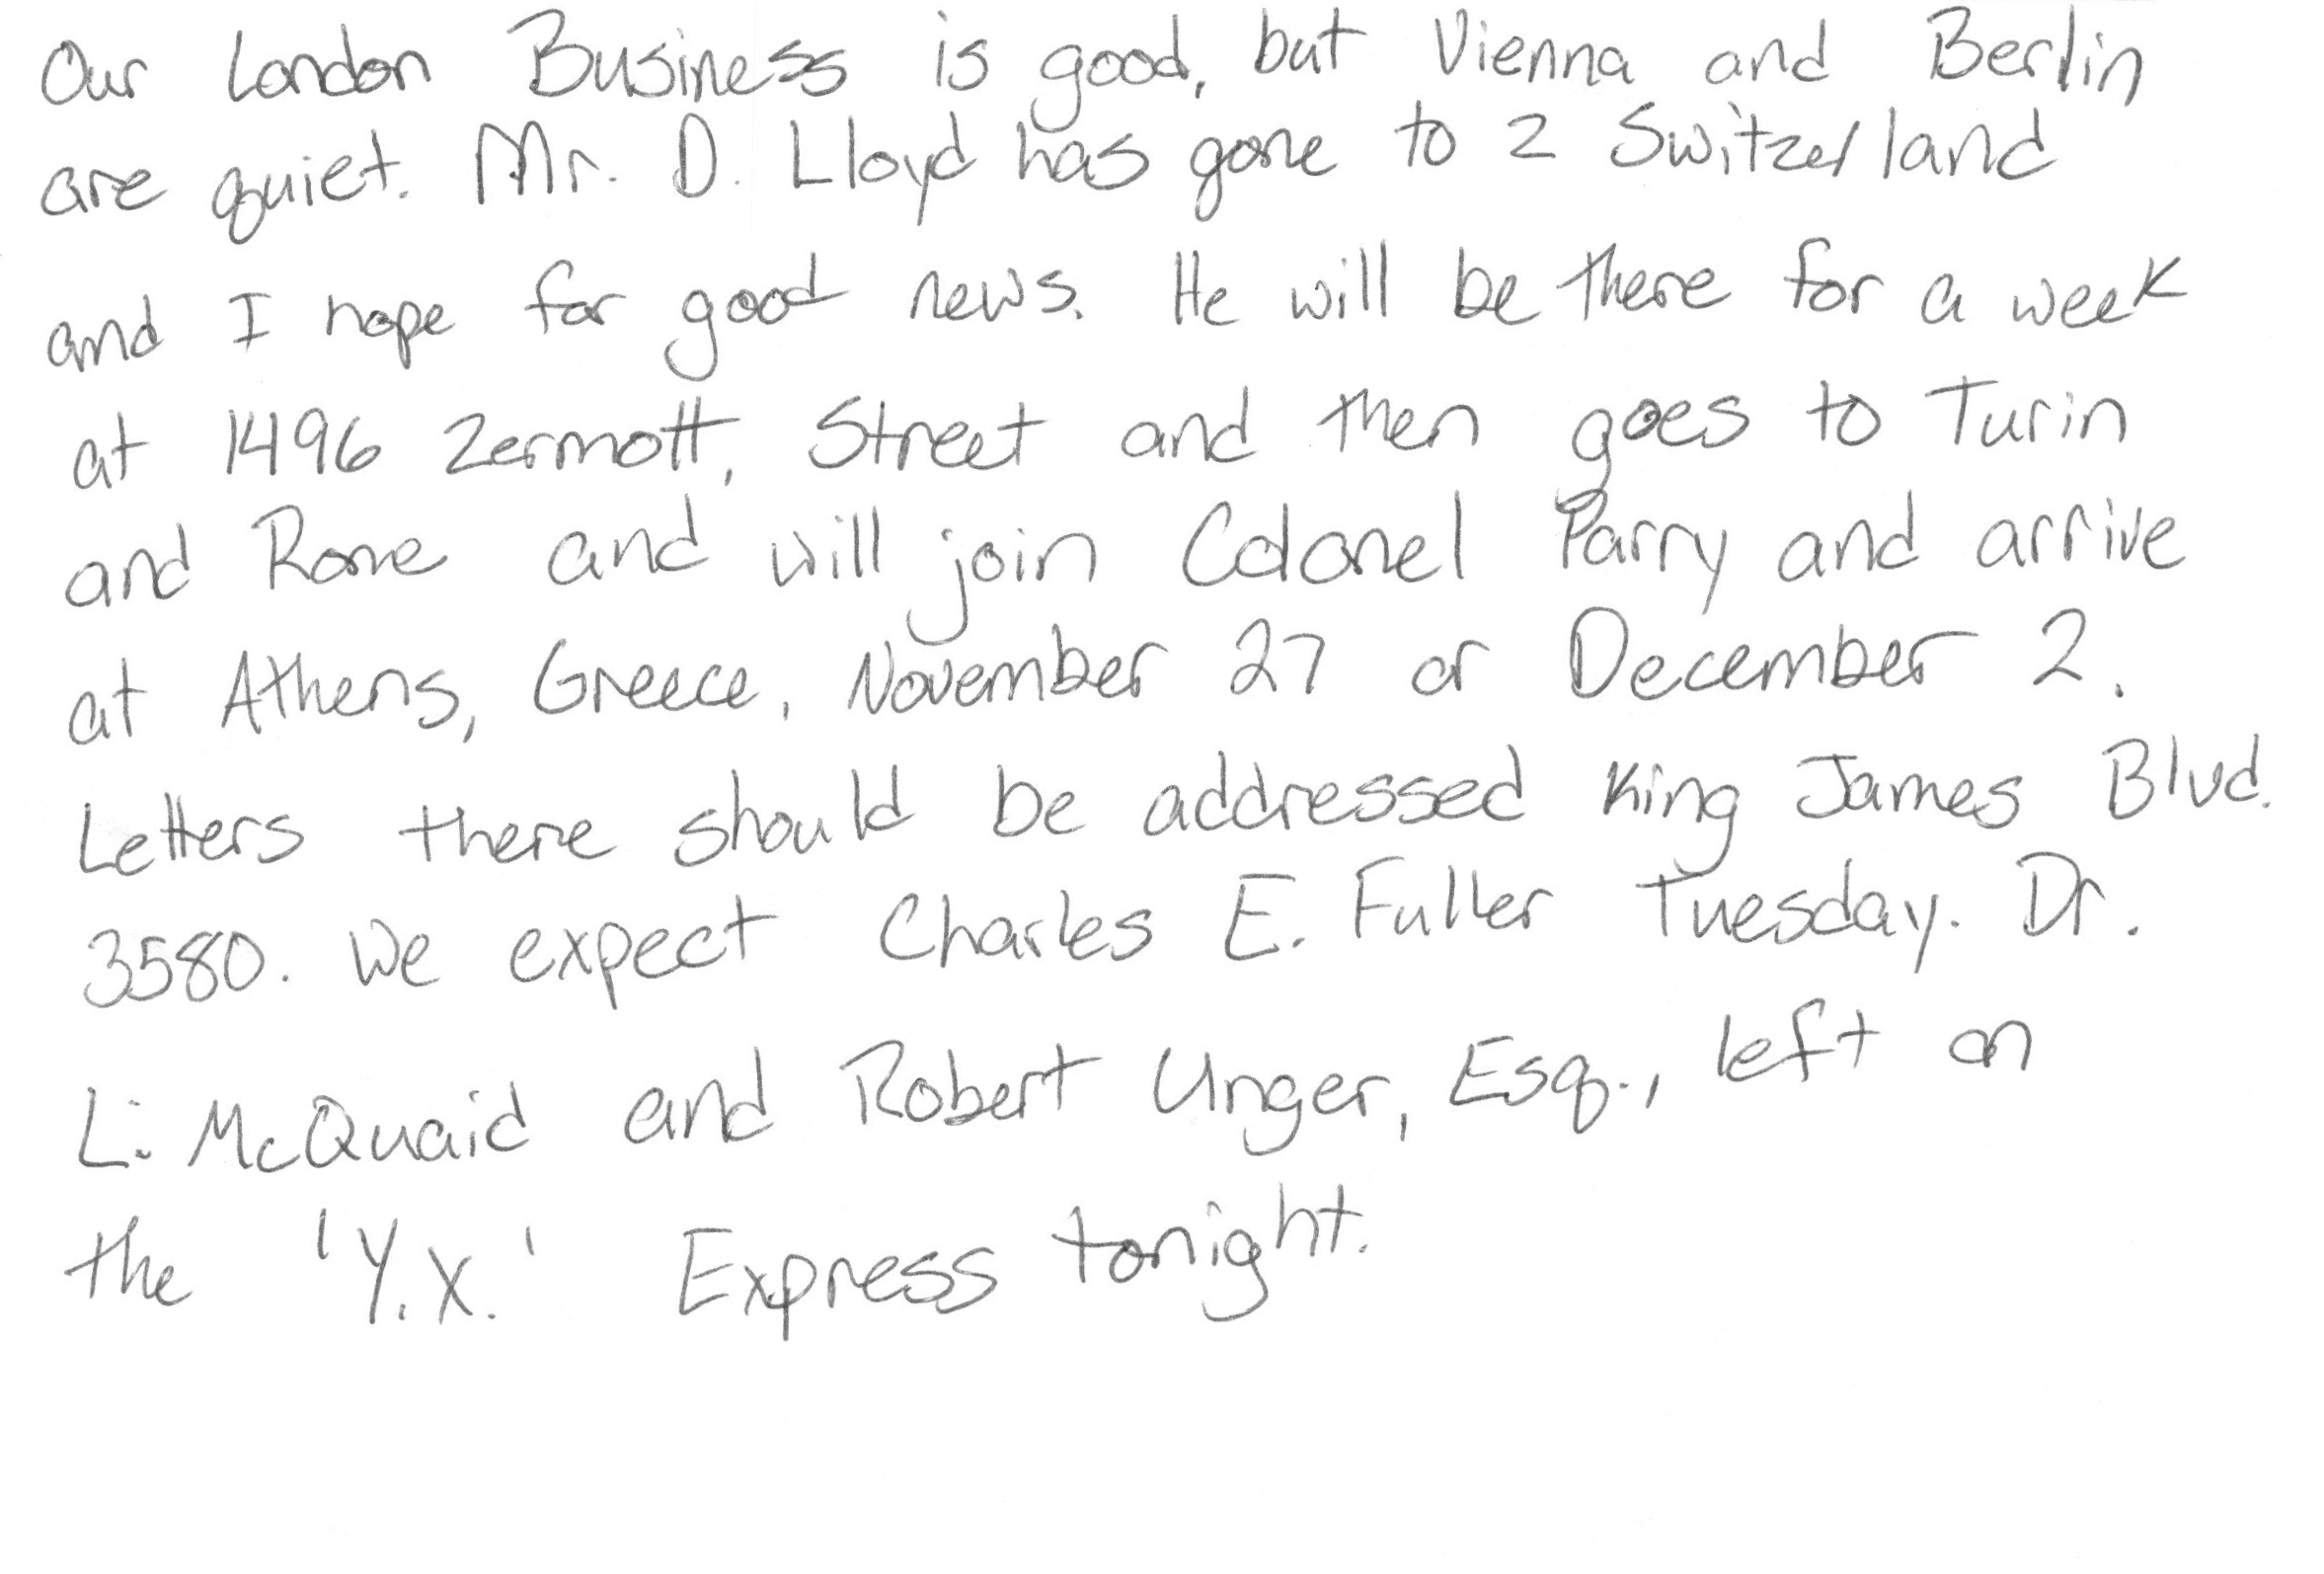 Our London Business is good, but Vienna and Berlin
are quiet. Mr. D. Lloyd has gone to 2 Switzerland
and I hope for good news. He will be there for a week
at 1496 Zermott, Street and then goes to Turin
and Rome and will join Colonel Parry and arrive
at Athens, Greece, November 27 or December 2.
Letters there should be addressed King James Blvd.
3580. We expect Charles E. Fuller Tuesday. Dr.
L. McQuaid and Robert Unger, Esq., left on
the 'Y.X.' Express tonight.